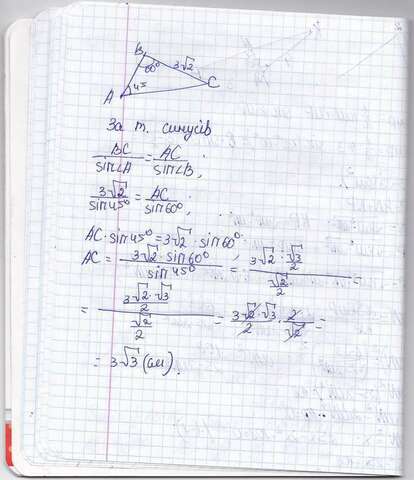 B
60°
3√2
A
45
C
За т. синусів
BC/sin∠A = AC/sin∠B ;
3√2/sin45° = AC/sin60° ;
AC · sin45° = 3√2 · sin60° ;
AC = 3√2 · sin60°/sin45° = (3√2 · √3/2)/(√2/2) =
= (3√2 · √3/2)/(√2/2) = 3√2 · √3/2 · 2/√2 =
= 3√3 (см).